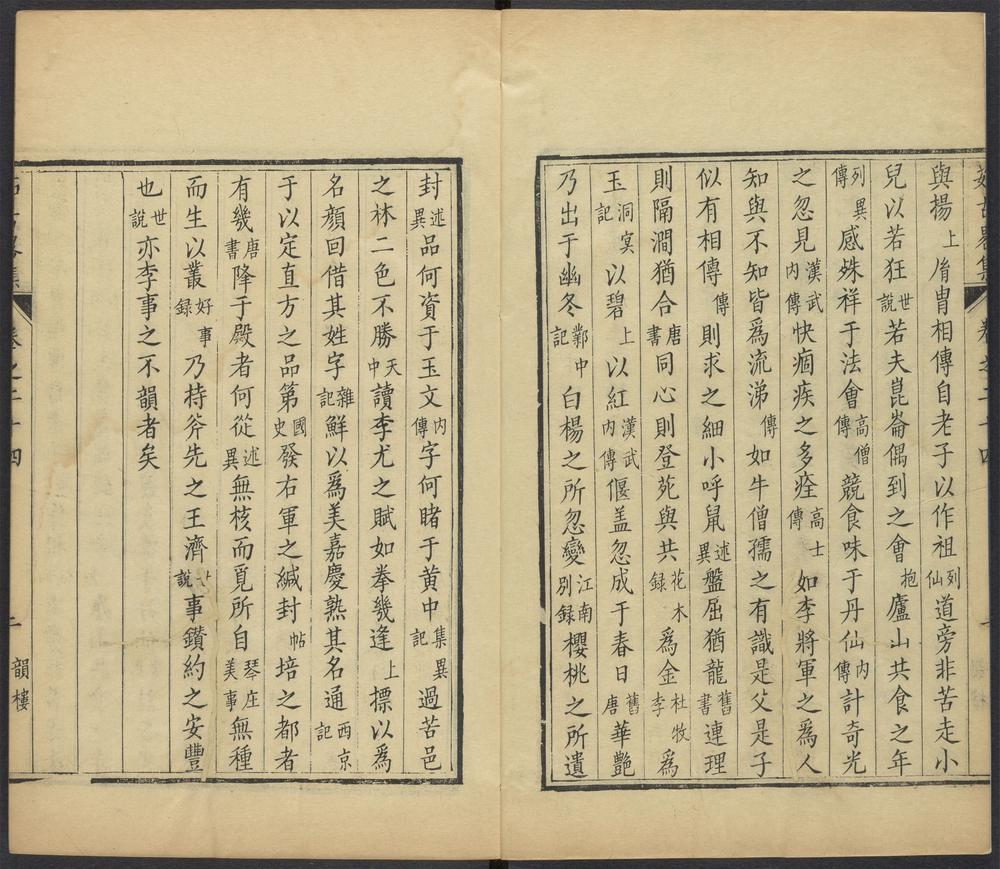 茹古畧集 卷之二十四
與楊上胤冑相傳自老子以作祖列仙道旁非苦走小
兒以若狂世說若夫崑崙偶到之會抱廬山共食之年
列異傳感姝祥于法會高僧傳競食味于丹仙內傳計奇光
之忽見漢武內傳快痼疾之多痊高士傳如李將軍之爲人
知與不知皆爲流涕傳如牛僧孺之有識是父是子
似有相傳傳則求之細小呼鼠述異盤屈猶龍舊書連理
則隔澗猶合唐書同心則登苑與共花木録爲金杜牧李爲
玉洞冥記以碧上以紅漢武內傳偃盖忽成于春日舊唐華艷
乃出于幽冬鄴中記白楊之所忽變江南別録櫻桃之所遺
封述異品何資于玉文內傳字何睹于黄中集異記過苦邑
之林二色不勝天中讀李尤之賦如拳幾逢上摽以爲
名顔回借其姓字雜記鮮以爲美嘉慶熟其名通西京記
于以定直方之品第國史發右軍之緘封帖培之都者
有幾唐書降于殿者何從述異無核而覓所自琴庄美事無種
而生以叢好事録乃持斧先之王濟世說事鑽約之安豐
也世說亦李事之不韻者矣
卷之二十四 二 韻樓